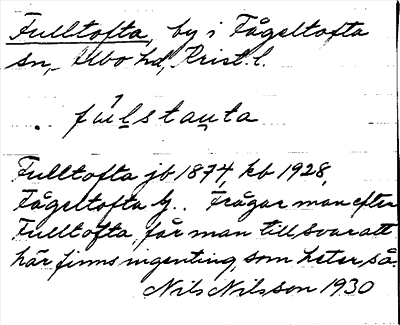 Fulltofta, by i Fågeltofta
sn, Albo hd, Krist. l.
fúlstauta
Fulltofta jb 1874, kb 1928,
Fågeltofta by. Frågar man efter
Fulltofta, får man till svar att
här finns ingenting, som heter så.
Nils Nilsson 1930